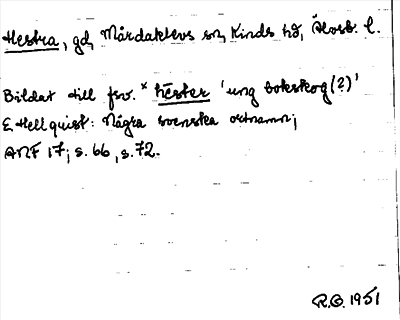 Hestra, gd, Mårdaklevs sn, Kinds hd, Älvsb. l.
Bildat till fsv. *hēster 'ung bokskog (?)'
E. Hellquist: Några svenska ortnamn;
ANF 17; s. 66, s. 72.
R.G. 1951